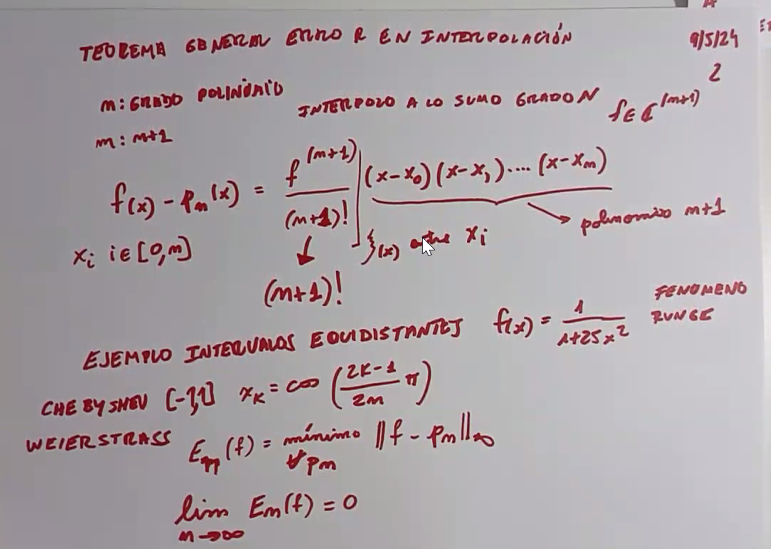 TEOREMA GENERAL ERROR EN INTERPOLACIÓN 9/5/24
2
m: GRADO POLINOMIO INTERPOLO A LO SUMO GRADO N f ∈ C^(m+1)
m: m+1
f(x) - p_m(x) = f^(m+1) / (m+1)! | (x-x_0)(x-x_1)....(x-x_m)
ξ(x) entre x_i → polinomio m+1
x_i i∈[0,m]
↓
(m+1)!
EJEMPLO INTERVALOS EQUIDISTANTES f(x) = 1 / 1+25x² FENOMENO RUNGE
CHEBYSHEV [-1,1] x_K = cos (2K-1 / 2m π)
WEIERSTRASS E_m(f) = mínimo ∀p_m ||f - p_m||_∞
lim m→∞ E_m(f) = 0